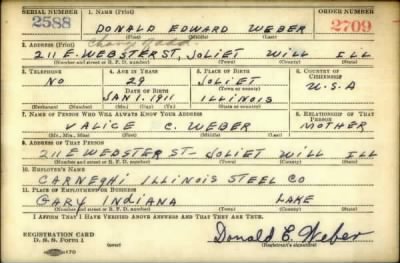 SERIAL NUMBER 1. NAME (Print) ORDER NUMBER
2588 DONALD EDWARD WEBER 2709
(First) (Middle) (Last)
2. ADDRESS (Print)
211 E. WEBSTER ST, JOLIET WILL ILL
(Number and street or R. F. D. number) (Town) (County) (State)
3. TELEPHONE 4. AGE IN YEARS 5. PLACE OF BIRTH 6. COUNTRY OF CITIZENSHIP
NO 29 JOLIET
DATE OF BIRTH U.S.A
JAN 1. 1911 ILLINOIS
(Exchange) (Number) (Mo.) (Day) (Yr.) (State or country)
7. NAME OF PERSON WHO WILL ALWAYS KNOW YOUR ADDRESS 8. RELATIONSHIP OF THAT PERSON
ALICE C. WEBER MOTHER
(Mr., Mrs., Miss) (First) (Middle) (Last)
9. ADDRESS OF THAT PERSON
211 E WEBSTER ST- JOLIET WILL ILL
(Number and street or R. F. D. number) (Town) (County) (State)
10. EMPLOYER'S NAME
CARNEGHI ILLINOIS STEEL CO
11. PLACE OF EMPLOYMENT OR BUSINESS
GARY INDIANA LAKE
(Number and street or R. F. D. number) (Town) (County) (State)
I AFFIRM THAT I HAVE VERIFIED ABOVE ANSWERS AND THAT THEY ARE TRUE.
REGISTRATION CARD
D. S. S. Form 1 Donald E. Weber
(Registrant's signature)